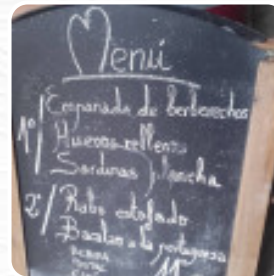 Menú
Empanada de berberechos
1º/ Huevos rellenos
Sardinas plancha
2º/ Rabo estofado
Bacalao a la portuguesa